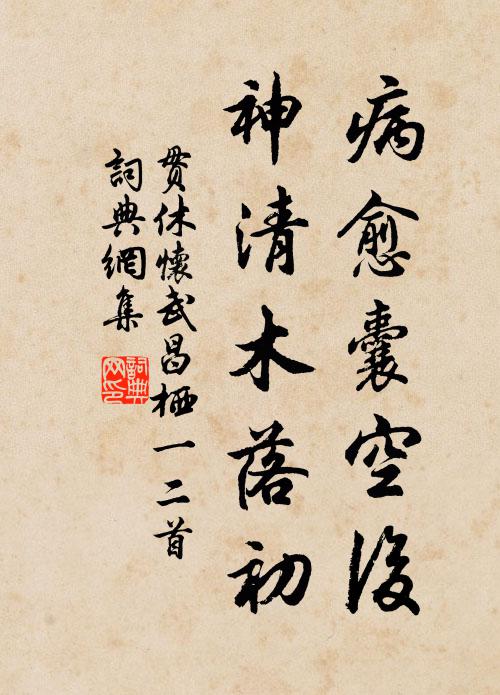 病愈囊空後
神清木落初
貫休懷武昌栖一二首
詞典網集
詞典
网印